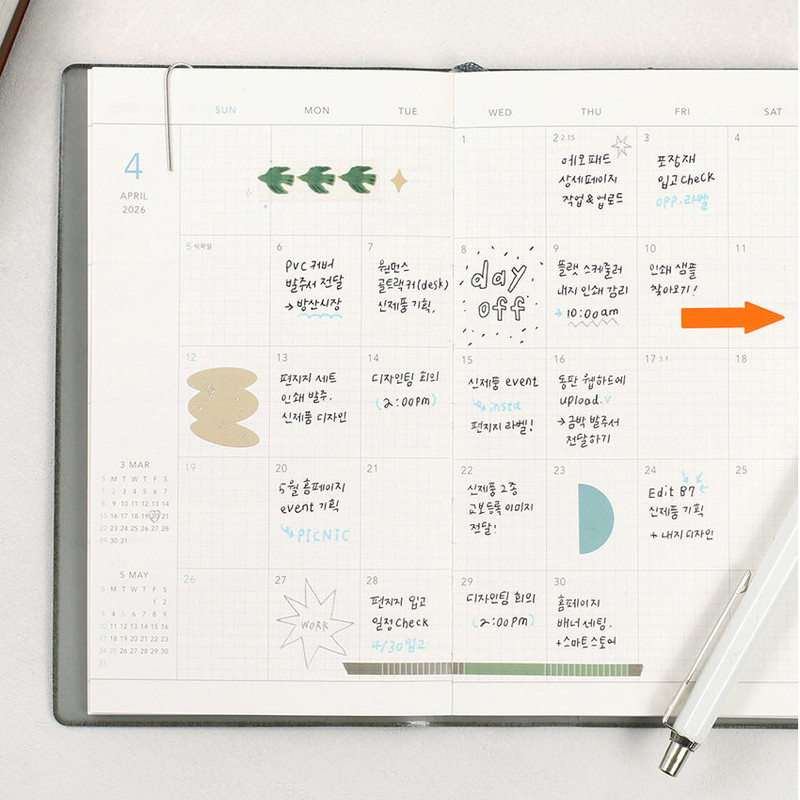 SUN MON TUE WED THU FRI SAT
4
APRIL
2026
1
2 2.15
메모패드
상세페이지
작업 & 업로드
3
포장재
입고 check
OPP.라벨
4
5 식목일
6
PVC 커버
발주서 전달
→ 방산시장
7
원먼스
골트랙커(desk)
신제품 기획.
8
day
off
9
플랫 스케줄러
내지 인쇄 감리
→ 10:00am
10
인쇄 샘플
찾아오기!
11
12
13
편지지 세트
인쇄 발주.
신제품 디자인
14
디자인팀 회의
(2:00PM)
15
신제품 event
insta
편지지 라벨!
16
동판 웹하드에
upload.v
→ 금박 발주서
전달하기
17 3.1
18
3 MAR
S M T W T F S
1 2 3 4 5 6 7
8 9 10 11 12 13 14
15 16 17 18 19 20 21
22 23 24 25 26 27 28
29 30 31
19
20
5월 홈페이지
event 기획
PICNIC
21
22
신제품 2종
교보등록 이미지
전달!
23
24
Edit B7
신제품 기획
+ 내지 디자인
25
5 MAY
S M T W T F S
1 2
3 4 5 6 7 8 9
10 11 12 13 14 15 16
17 18 19 20 21 22 23
24 25 26 27 28 29 30
31
26
27
WORK
28
편지지 입고
일정 check
4/30 입고
29
디자인팀 회의
(2:00PM)
30
홈페이지
배너 세팅.
+스마트스토어